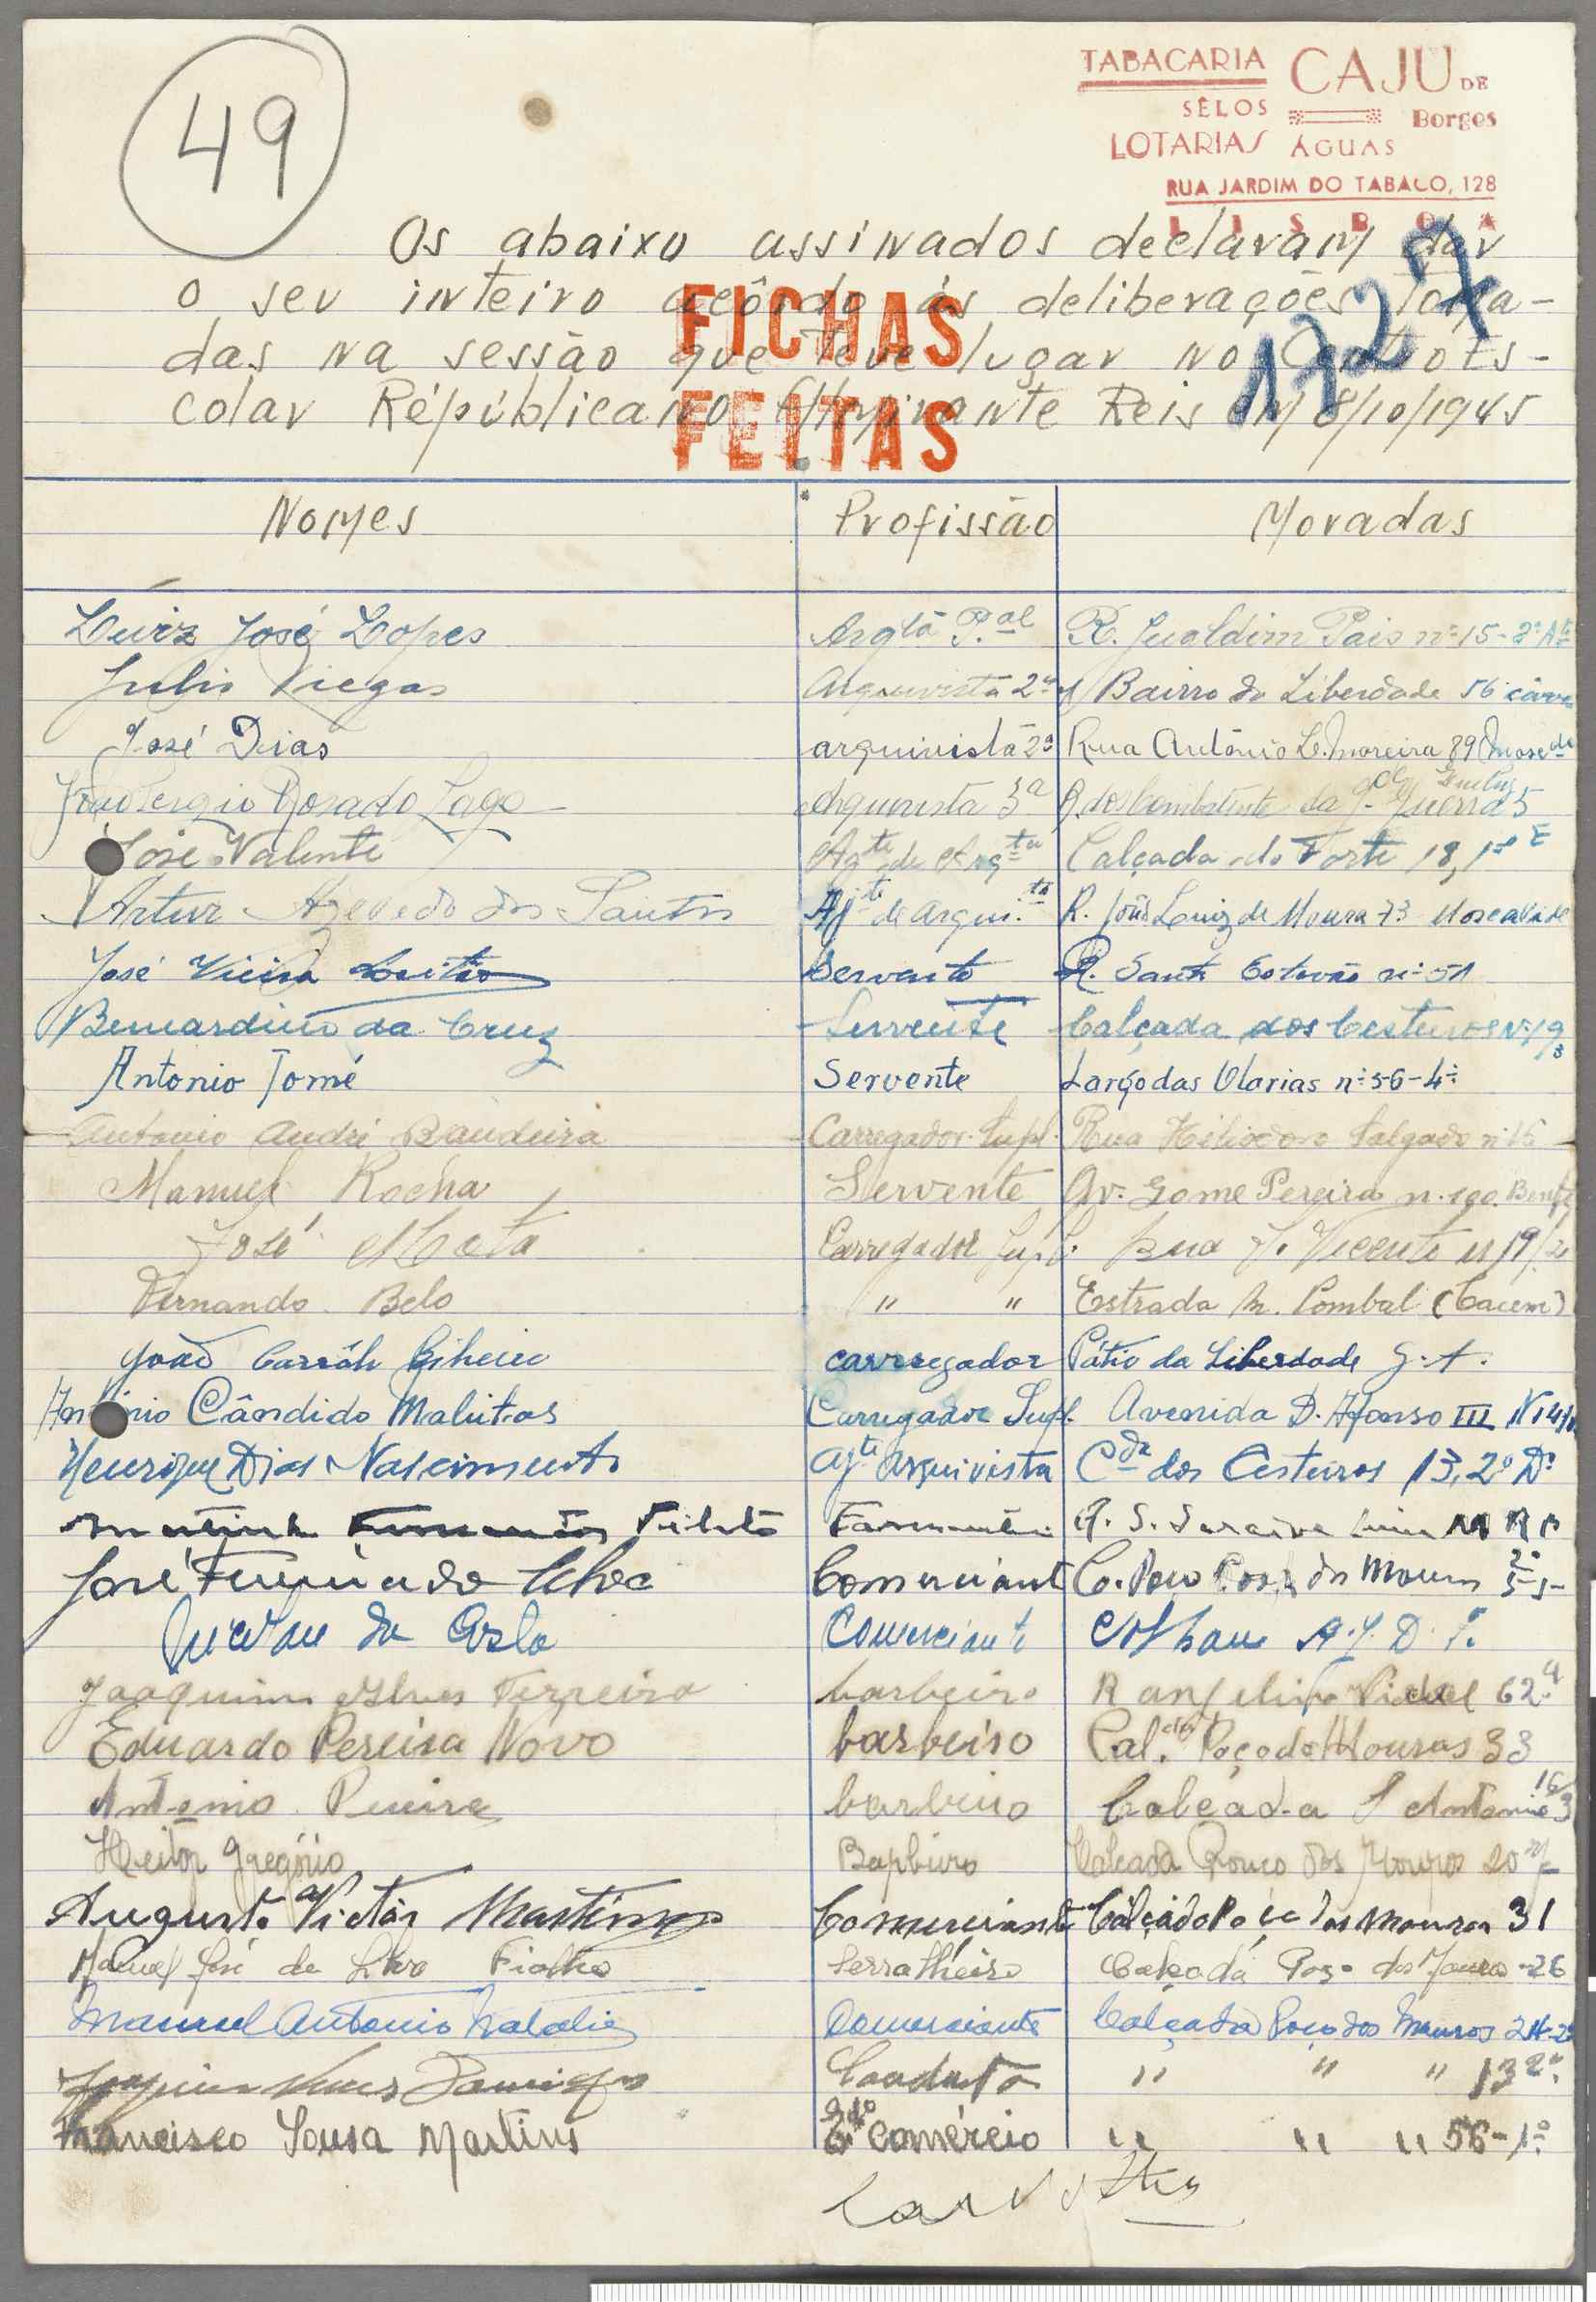 49
TABACARIA CAJÚ DE
SÊLOS Borges
LOTARIAS ÁGUAS
RUA JARDIM DO TABACO, 128
LISBOA
1727
Os abaixo assinados declaram dar
o seu inteiro acôrdo ás deliberações toma-
das na sessão que teve lugar no Centro Es-
colar Républicano Almirante Reis em 8/10/1945
FICHAS
FEITAS
Nomes Profissão Moradas
Luiz José Lopes Arqtª P.al R. Gualdim Pais nº 15-2º
Julio Viegas Arquivista 2ª Bairro da Liberdade 56
José Dias arquivista 2ª Rua António L. Moreira 89
João Sergio Rosado Lage Arquivista 3ª R. dos Combatentes da Gde Guerra 5
José Valente de Calçada do Forte 18, 1º E
Artur Azevedo dos Santos Ajte de arqui.ta R. João Luiz de Moura 73 Moscavide
José Vieira Servente R. Santo Estevão nº 51
Bernardino da Cruz Servente Calçada dos Cesteiros Nº 19
Antonio Tomé Servente Largo das Olarias nº 56-4º
Antonio André Bandeira Carregador Supl. Rua Heliodoro Salgado nº 15
Manuel Rocha Servente Av. Gome Pereira n. 190.
José Mata Carregador Supl. Rua Vicente 19
Fernando Belo " " Estrada M. Pombal (Cacem)
João Carregador Pátio da Liberdade
António Cândido Carregador Supl. Avenida D. Afonso III
Henrique Dias Nascimento Ajte Arquivista Cda dos Cesteiros 13, 2º Dº
José Ferreira da Silva Comerciante
da Comerciante
Joaquim Alves Ferreira barbeiro R Angelina Vidal 62
Eduardo Pereira Novo barbeiro Cal. Poço dos Mouros 33
Antonio Pereira barbeiro Calçada S Antonio
Heitor Gregório Barbeiro Calçada Poço dos Mouros 20
Augusto Victôr Martins Comerciante Calçada Poço dos Mouros 31
Manuel José da Silva Fialho Serralheiro Calçada Poço dos Mouros 26
Manuel Antonio Natalio Comerciante Calçada Poço dos Mouros
Joaquim " " " 13 2º
Francisco Sousa Martins comércio " " " 56-1º